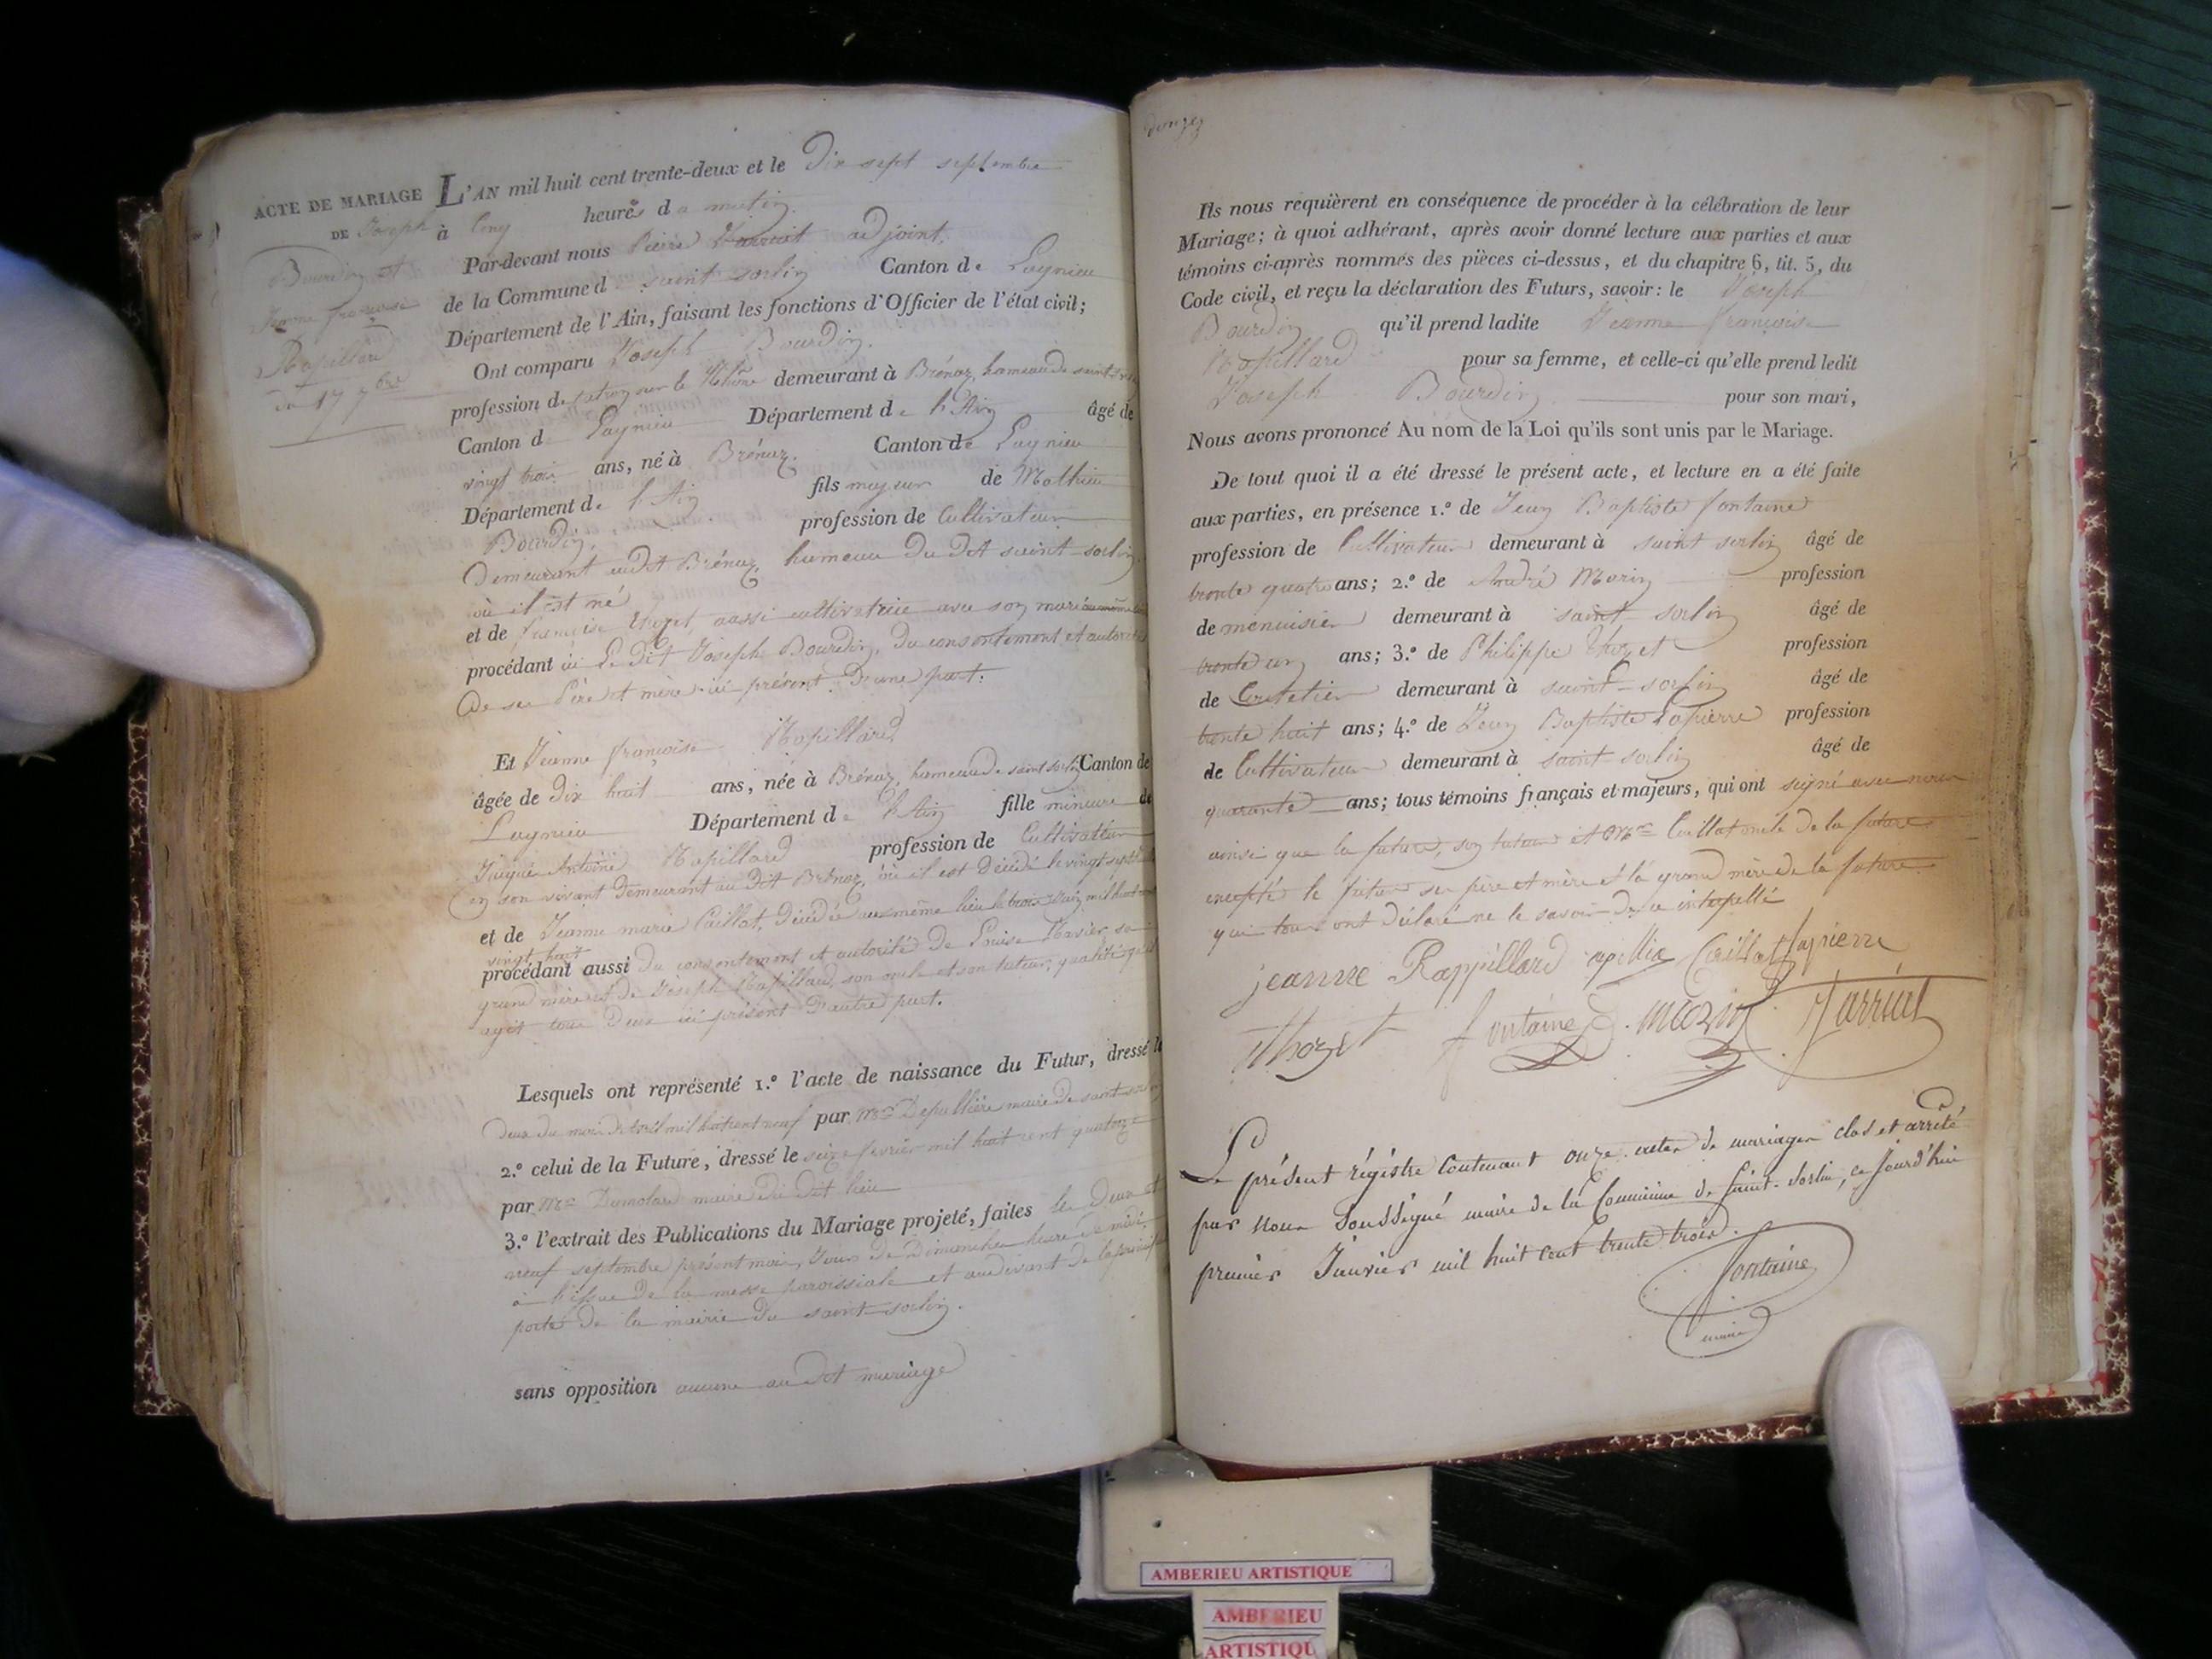 ACTE DE MARIAGE
DE Joseph
Bourdin et
Jeanne françoise
Rapillard
du 17 7bre
L'AN mil huit cent trente-deux et le Dix sept septembre
à Cinq heures du matin.
Par-devant nous Pierre Varriat adjoint,
de la Commune d saint-sorlin Canton de Lagnieu
Département de l'Ain, faisant les fonctions d'Officier de l'état civil;
Ont comparu Joseph Bourdin.
profession de patron sur le Rhône demeurant à Brénaz, hameau de saint sorlin
Canton d Lagnieu Département de l'Ain âgé de
vingt trois ans, né à Brénaz. Canton de Lagnieu
Département de l'Ain fils majeur de Mathieu
Bourdin, profession de Cultivateur
Demeurant audit Brénaz, hameau du dit saint-sorlin,
où il est né
et de françoise Thozet, aussi cultivatrice avec son mari
procédant ici Le dit Joseph Bourdin, du consentement et autorité
De ses Père et mère ici présent D'une part.
Et Jeanne françoise Rapillard
âgée de dix huit ans, née à Brénaz, hameau de saint sorlin Canton de
Lagnieu Département de l'Ain fille mineure de
Antoine Rapillard profession de Cultivateur
en son vivant Demeurant au dit Brénaz, où il est Décédé le vingt sept
et de Jeanne marie Caillat, Décédée au même lieu le trois mil huit cent
vingt huit
procédant aussi du consentement et autorité de Louise Ravier sa
grand mère et de Joseph Rapillard, son oncle et son tuteur, qualité qu'il
agit tous Deux ici présent D'autre part.
Lesquels ont représenté 1.º l'acte de naissance du Futur, dressé le
Deux du mois d'avril mil huit cent neuf par Mr Depullière maire de saint sorlin
2.º celui de la Future, dressé le seize fevrier mil huit cent quatorze
par Mr Dumolard maire du dit lieu
3.º l'extrait des Publications du Mariage projeté, faites les Deux et
neuf septembre présent mois, Jours de Dimanches heure de midi,
à l'issue De la messe paroissiale et au devant de la principale
porte De la mairie du saint-sorlin.
sans opposition aucune au dit mariage
Ils nous requièrent en conséquence de procéder à la célébration de leur
Mariage; à quoi adhérant, après avoir donné lecture aux parties et aux
témoins ci-après nommés des pièces ci-dessus, et du chapitre 6, tit. 5, du
Code civil, et reçu la déclaration des Futurs, savoir: le Joseph
Bourdin qu'il prend ladite Jeanne françoise
Rapillard pour sa femme, et celle-ci qu'elle prend ledit
Joseph Bourdin pour son mari,
Nous avons prononcé Au nom de la Loi qu'ils sont unis par le Mariage.
De tout quoi il a été dressé le présent acte, et lecture en a été faite
aux parties, en présence 1.º de Jean Baptiste fontaine
profession de Cultivateur demeurant à saint sorlin âgé de
trente quatre ans; 2.º de André Morin profession
de menuisier demeurant à saint-sorlin âgé de
trente un ans; 3.º de Philippe Thozet profession
de demeurant à saint-sorlin âgé de
trente huit ans; 4.º de Jean Baptiste Lapierre profession
de Cultivateur demeurant à saint-sorlin âgé de
quarante ans; tous témoins français et majeurs, qui ont signé avec nous
ainsi que la future, son tuteur et Caillat oncle de la future
excepté le futur ses père et mère et la grand mère de la future
qui tous ont Déclaré ne le savoir De ce interpellé
jeanne Rappillard Caillat Lapierre
Thozet fontaine Morin Varriat
Le présent régistre Contenant onze actes de mariages clos et arrêté
par nous Soussigné maire de la Commune de Saint-Sorlin, ce Jourd'hui
premier Janvier mil huit cent trente trois.
fontaine
maire
AMBERIEU ARTISTIQUE
AMBERIEU
ARTISTIQU